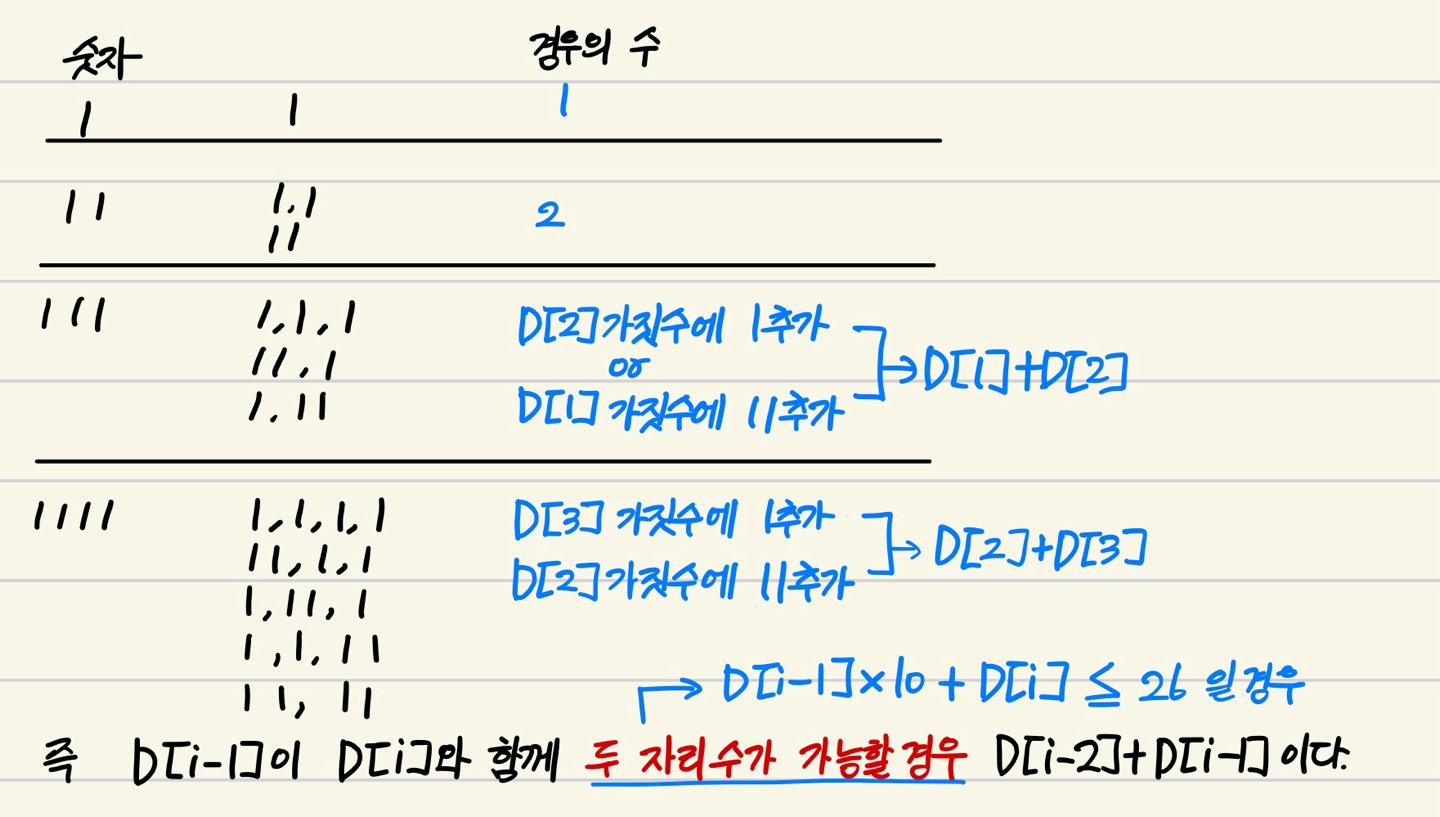 숫자 경우의 수
1 1 1
11 1,1 2
11
111 1,1,1 D[2]가짓수에 1추가
11,1 or → D[1]+D[2]
1,11 D[1] 가짓수에 11추가
1111 1,1,1,1 D[3] 가짓수에 1추가
11,1,1 D[2]가짓수에 11추가 → D[2]+D[3]
1,11,1
1,1,11
11,11 → D[i-1]×10 + D[i] ≤ 26 일경우
즉 D[i-1]이 D[i]와 함께 두 자리수가 가능할 경우 D[i-2]+D[i-1]이다.